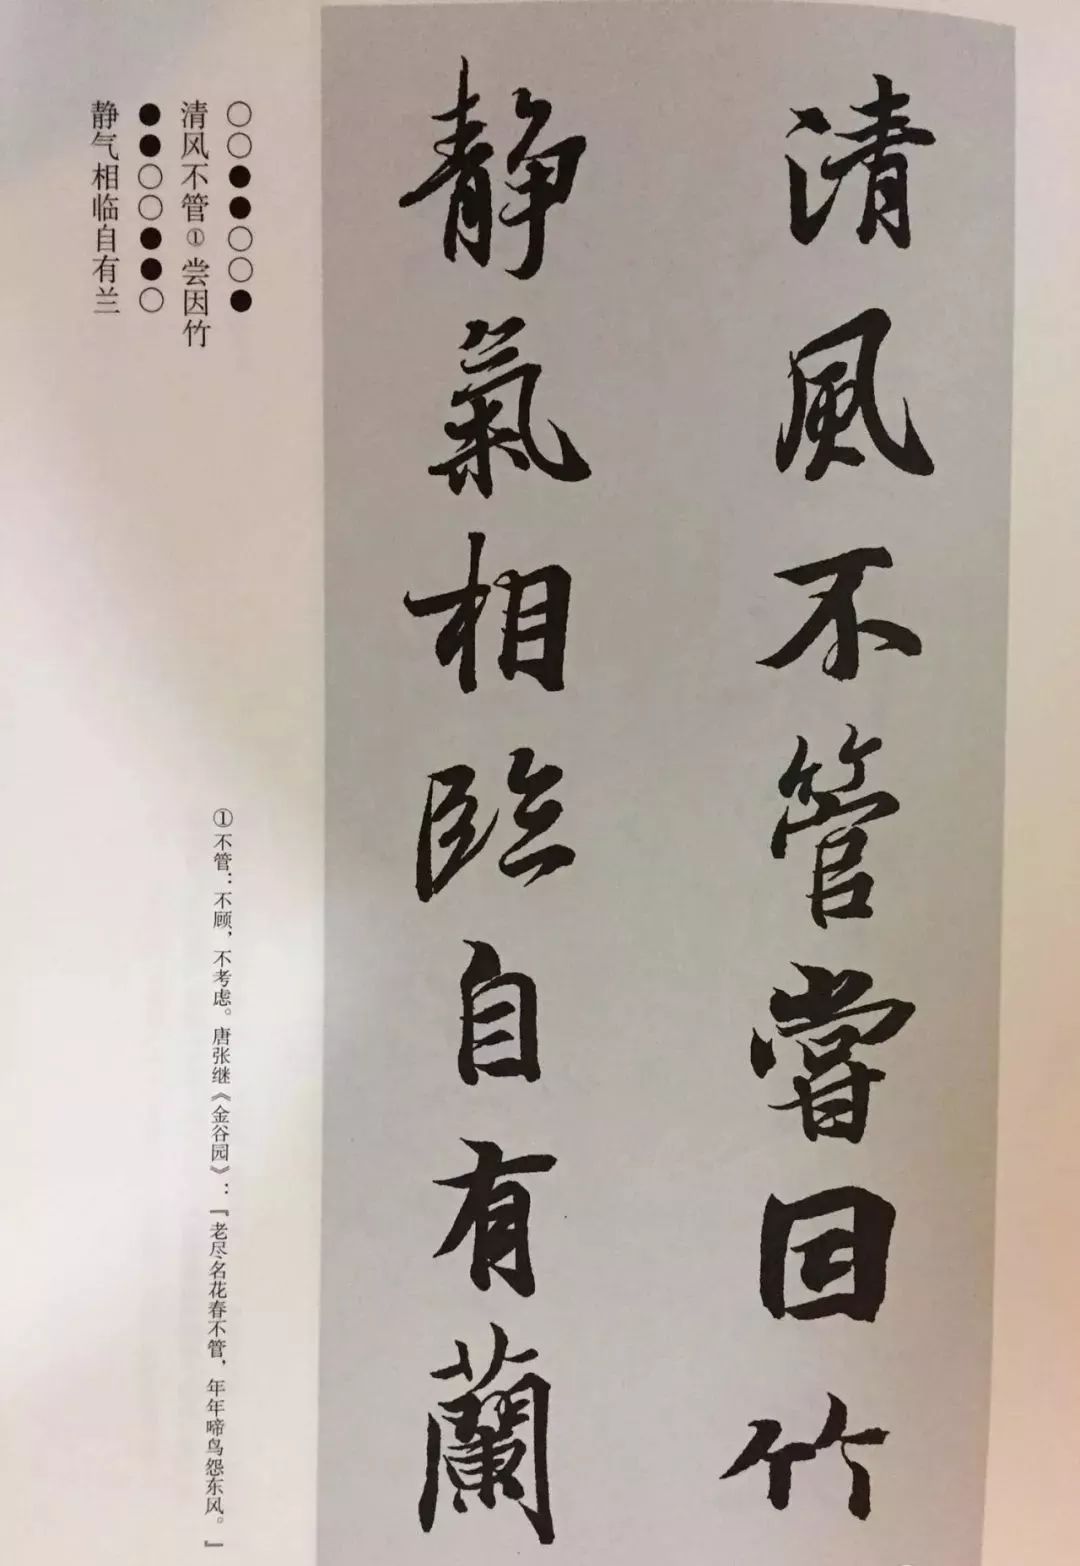 清風不管嘗因竹
静氣相臨自有蘭
○○●●○○●
清风不管①尝因竹
●●○○●●○
静气相临自有兰
①不管：不顾，不考虑。唐张继《金谷园》：「老尽名花春不管，年年啼鸟怨东风。」